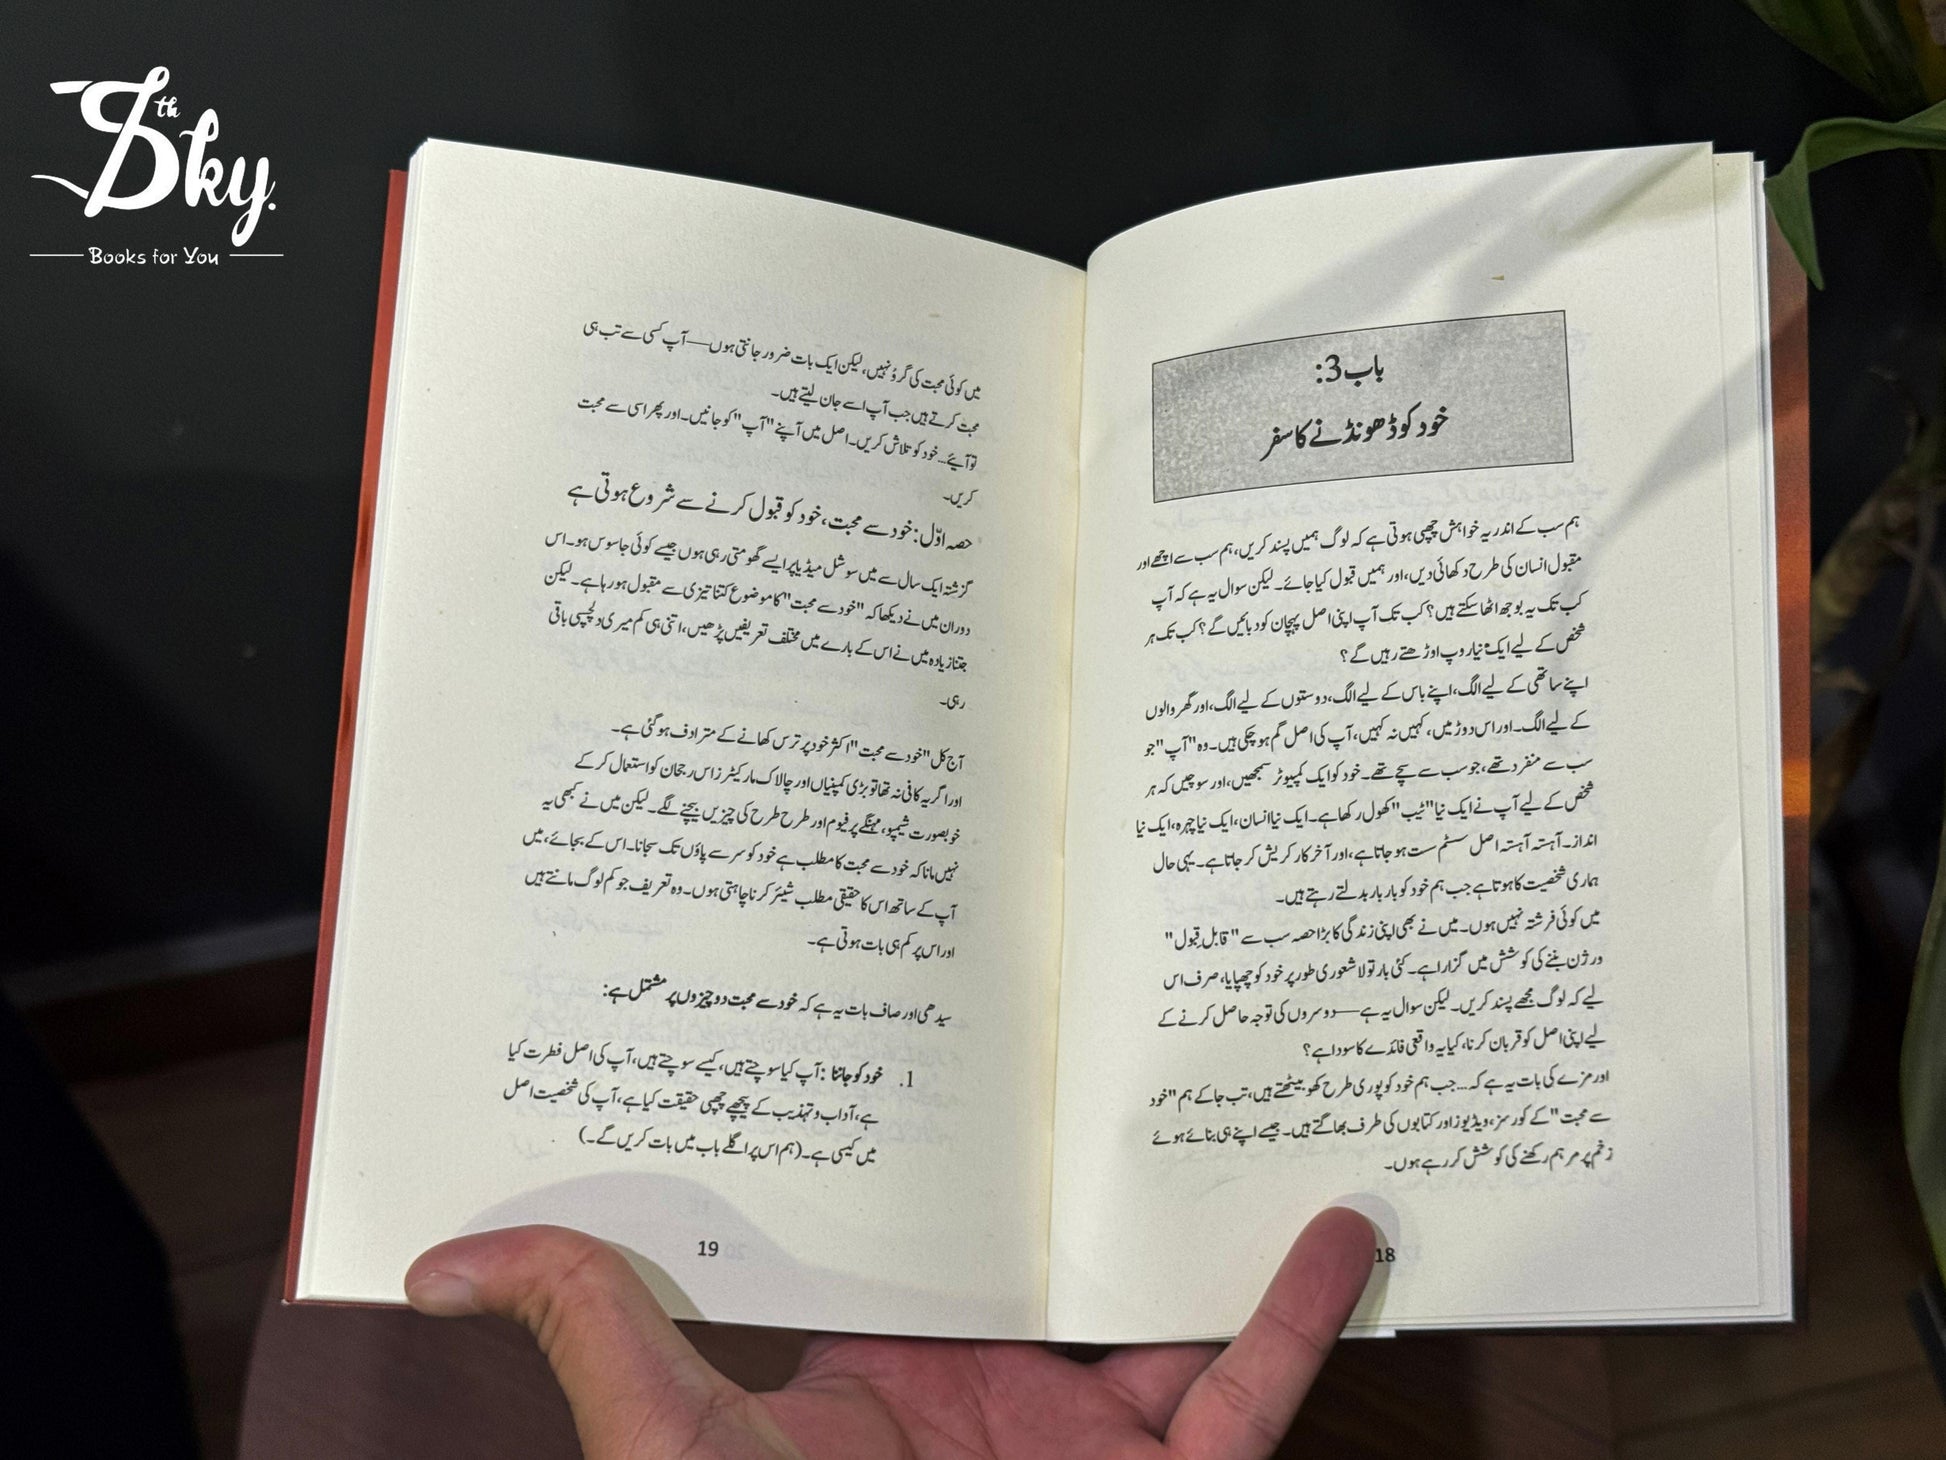 8th Sky.
Books for You
باب 3:
خود کو ڈھونڈنے کا سفر
ہم سب کے اندر یہ خواہش چھپی ہوتی ہے کہ لوگ ہمیں پسند کریں، ہم سب سے اچھے اور
مقبول انسان کی طرح دکھائی دیں، اور ہمیں قبول کیا جائے۔ لیکن سوال یہ ہے کہ آپ
کب تک یہ بوجھ اٹھا سکتے ہیں؟ کب تک آپ اپنی اصل پہچان کو دبائیں گے؟ کب تک ہر
شخص کے لیے ایک نیا روپ اوڑھتے رہیں گے؟
اپنے ساتھی کے لیے الگ، اپنے باس کے لیے الگ، دوستوں کے لیے الگ، اور گھر والوں
کے لیے الگ۔ اور اس دوڑ میں، کہیں نہ کہیں، آپ کی اصل گم ہو چکی ہیں۔ وہ "آپ" جو
سب سے منفرد تھے، جو سب سے سچے تھے۔ خود کو ایک کمپیوٹر سمجھیں، اور سوچیں کہ ہر
شخص کے لیے آپ نے ایک نیا "ٹیب" کھول رکھا ہے۔ ایک نیا انسان، ایک نیا چہرہ، ایک نیا
انداز۔ آہستہ آہستہ اصل سسٹم سست ہو جاتا ہے، اور آخر کار کریش کر جاتا ہے۔ یہی حال
ہماری شخصیت کا ہوتا ہے جب ہم خود کو بار بار بدلتے رہتے ہیں۔
میں کوئی فرشتہ نہیں ہوں۔ میں نے بھی اپنی زندگی کا بڑا حصہ سب سے "قابلِ قبول"
ورژن بننے کی کوشش میں گزارا ہے۔ کئی بار تو لاشعوری طور پر خود کو چھپایا، صرف اس
لیے کہ لوگ مجھے پسند کریں۔ لیکن سوال یہ ہے—دوسروں کی توجہ حاصل کرنے کے
لیے اپنی اصل کو قربان کرنا، کیا یہ واقعی فائدے کا سودا ہے؟
اور مزے کی بات یہ ہے کہ... جب ہم خود کو پوری طرح کھو بیٹھتے ہیں، تب جا کے ہم "خود
سے محبت" کے کورسز، ویڈیوز اور کتابوں کی طرف بھاگتے ہیں۔ جیسے اپنے ہی بنائے ہوئے
زخم پر مرہم رکھنے کی کوشش کر رہے ہوں۔
18
میں کوئی محبت کی گرؤ نہیں، لیکن ایک بات ضرور جانتی ہوں—آپ کسی سے تب ہی
محبت کرتے ہیں جب آپ اسے جان لیتے ہیں۔
تو آیئے... خود کو تلاش کریں۔ اصل میں اپنے "آپ" کو جانیں۔ اور پھر اسی سے محبت
کریں۔
حصہ اوّل: خود سے محبت، خود کو قبول کرنے سے شروع ہوتی ہے
گزشتہ ایک سال سے میں سوشل میڈیا پر ایسے گھومتی رہی ہوں جیسے کوئی جاسوس ہو۔ اس
دوران میں نے دیکھا کہ "خود سے محبت" کا موضوع کتنا تیزی سے مقبول ہو رہا ہے۔ لیکن
جتنا زیادہ میں نے اس کے بارے میں مختلف تعریفیں پڑھیں، اتنی ہی کم میری دلچسپی باقی
رہی۔
آج کل "خود سے محبت" اکثر خود پر ترس کھانے کے مترادف ہو گئی ہے۔
اور اگر یہ کافی نہ تھا تو بڑی کمپنیاں اور چالاک مارکیٹرز اس رجحان کو استعمال کر کے
خوبصورت شیمپو، مہنگے پرفیوم اور طرح طرح کی چیزیں بیچنے لگے۔ لیکن میں نے کبھی یہ
نہیں مانا کہ خود سے محبت کا مطلب ہے خود کو سر سے پاؤں تک سجانا۔ اس کے بجائے، میں
آپ کے ساتھ اس کا حقیقی مطلب شیئر کرنا چاہتی ہوں۔ وہ تعریف جو کم لوگ مانتے ہیں
اور اس پر کم ہی بات ہوتی ہے۔
سیدھی اور صاف بات یہ ہے کہ خود سے محبت دو چیزوں پر مشتمل ہے:
1. خود کو جاننا: آپ کیا سوچتے ہیں، کیسے سوچتے ہیں، آپ کی اصل فطرت کیا
ہے، آداب و تہذیب کے پیچھے چھپی حقیقت کیا ہے، آپ کی شخصیت اصل
میں کیسی ہے۔ (ہم اس پر اگلے باب میں بات کریں گے۔)
19